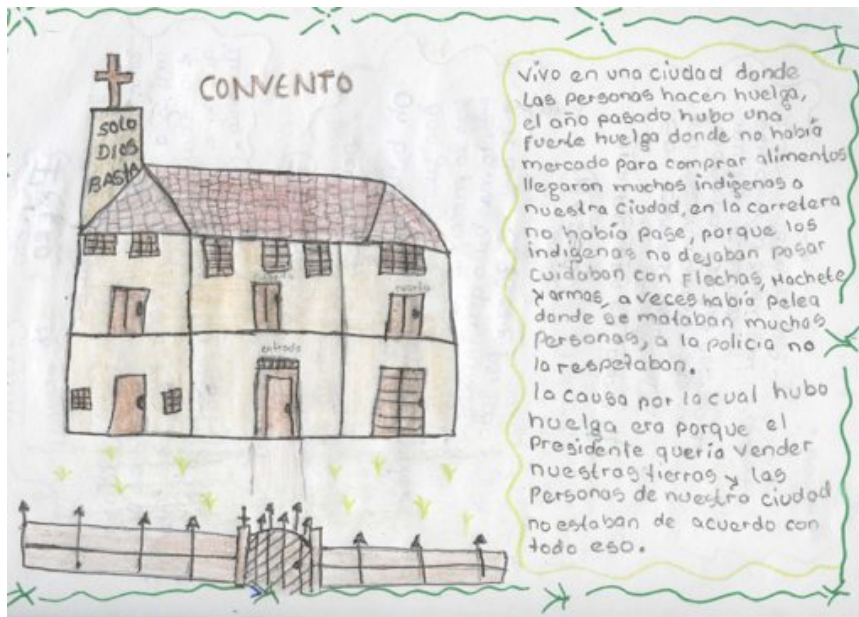 CONVENTO
SOLO
DIOS
BASTA
cuarto
entrada
Vivo en una ciudad donde
las personas hacen huelga,
el año pasado hubo una
fuerte huelga donde no había
mercado para comprar alimentos
llegaron muchos indigenas a
nuestra ciudad, en la carretera
no había pase, porque los
indigenas no dejaban pasar
cuidaban con Flechas, Machete
y armas, a veces había pelea
donde se mataban muchas
personas, a la policia no
la respetaban.
la causa por la cual hubo
huelga era porque el
Presidente quería vender
nuestras tierras y las
Personas de nuestra ciudad
no estaban de acuerdo con
todo eso.